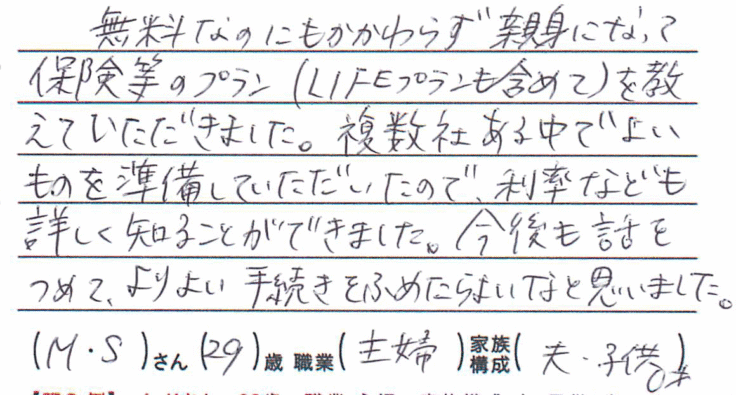 無料なのにもかかわらず親身になって
保険等のプラン(LIFEプランも含めて)を教
えていただきました。複数社ある中でよい
ものを準備していただいたので、利率なども
詳しく知ることができました。今後も話を
つめて、よりよい手続きをふめたらよいなと思いました。
(M・S)さん(29)歳 職業(主婦)家族構成(夫・子供)